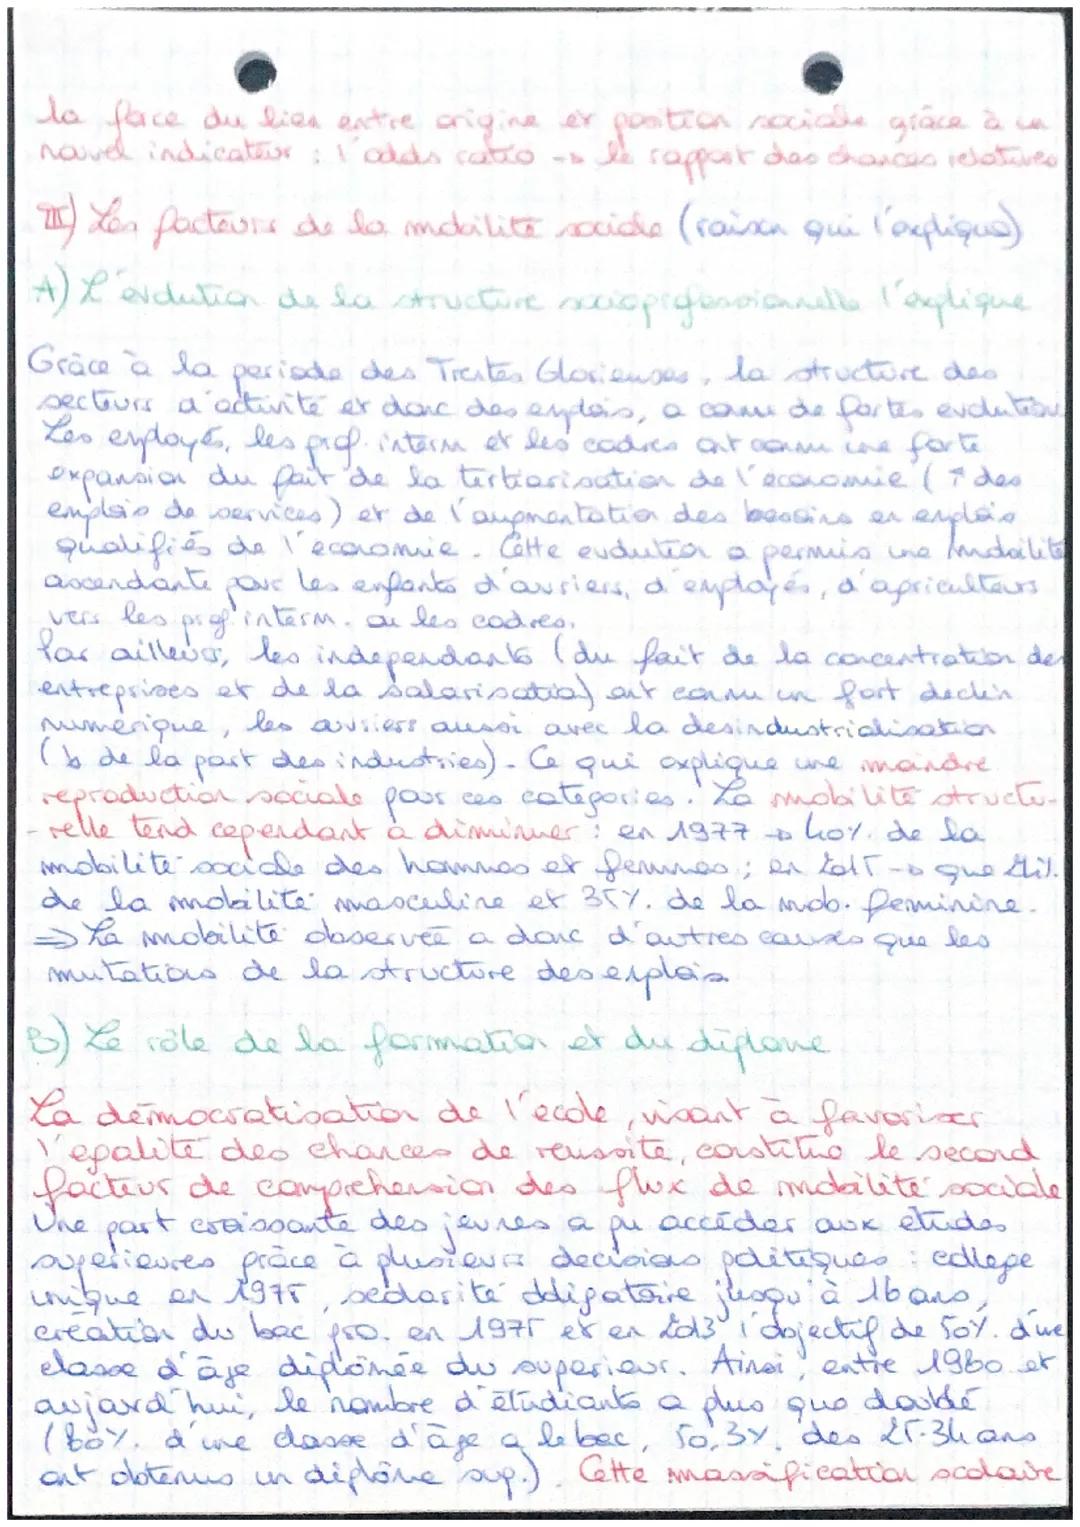 la force du lien entre origine et position sociale grâce à un
nouvel indicateur : l'odds ratio -> le rapport des chances relatives
III) Les facteurs de la mobilité sociale (raison qui l'explique)
A) L'évolution de la structure socioprofessionnelle l'explique
Grâce à la periode des Trentes Glorieuses, la structure des
secteurs d'activité et donc des emplois, a connu de fortes evolutions
Les employés, les prof. interm et les cadres ont connu une forte
expansion du fait de la tertiarisation de l'economie (↑ des
emplois de services) et de l'augmentation des besoins en emplois
qualifiés de l'economie. Cette evolution a permis une mobilité
ascendante pour les enfants d'ouvriers, d'employés, d'agriculteurs
vers les prof. interm. ou les cadres.
Par ailleurs, les independants (du fait de la concentration des
entreprises et de la salarisation) ont connu un fort declin
numerique, les ouvriers aussi avec la desindustrialisation
(↓ de la part des industries). Ce qui explique une moindre
reproduction sociale pour ces categories. La mobilité structu-
-relle tend cependant à diminuer : en 1977 -> 40%. de la
mobilité sociale des hommes et femmes ; en 2015 -> que
de la mobilité masculine et 35%. de la mob. feminine.
=> La mobilité observée a donc d'autres causes que les
mutations de la structure des emplois
B) Le rôle de la formation et du diplome
La démocratisation de l'ecole, visant à favoriser
l'egalité des chances de reussite, constitue le second
facteur de comprehension des flux de mobilité sociale
Une part croissante des jeunes a pu accéder aux études
superieures grâce à plusieurs decisions politiques : college
unique en 1975, scolarité obligatoire jusqu'à 16 ans,
création du bac pro. en 1975 et en 2013 l'objectif de 50%. d'une
classe d'âge diplômée du superieur. Ainsi, entre 1960 et
aujourd'hui, le nombre d'étudiants a plus que doublé
(80%. d'une classe d'âge a le bac, 50,3%. des 25-34 ans
ont obtenus un diplôme sup.). Cette massification scolaire